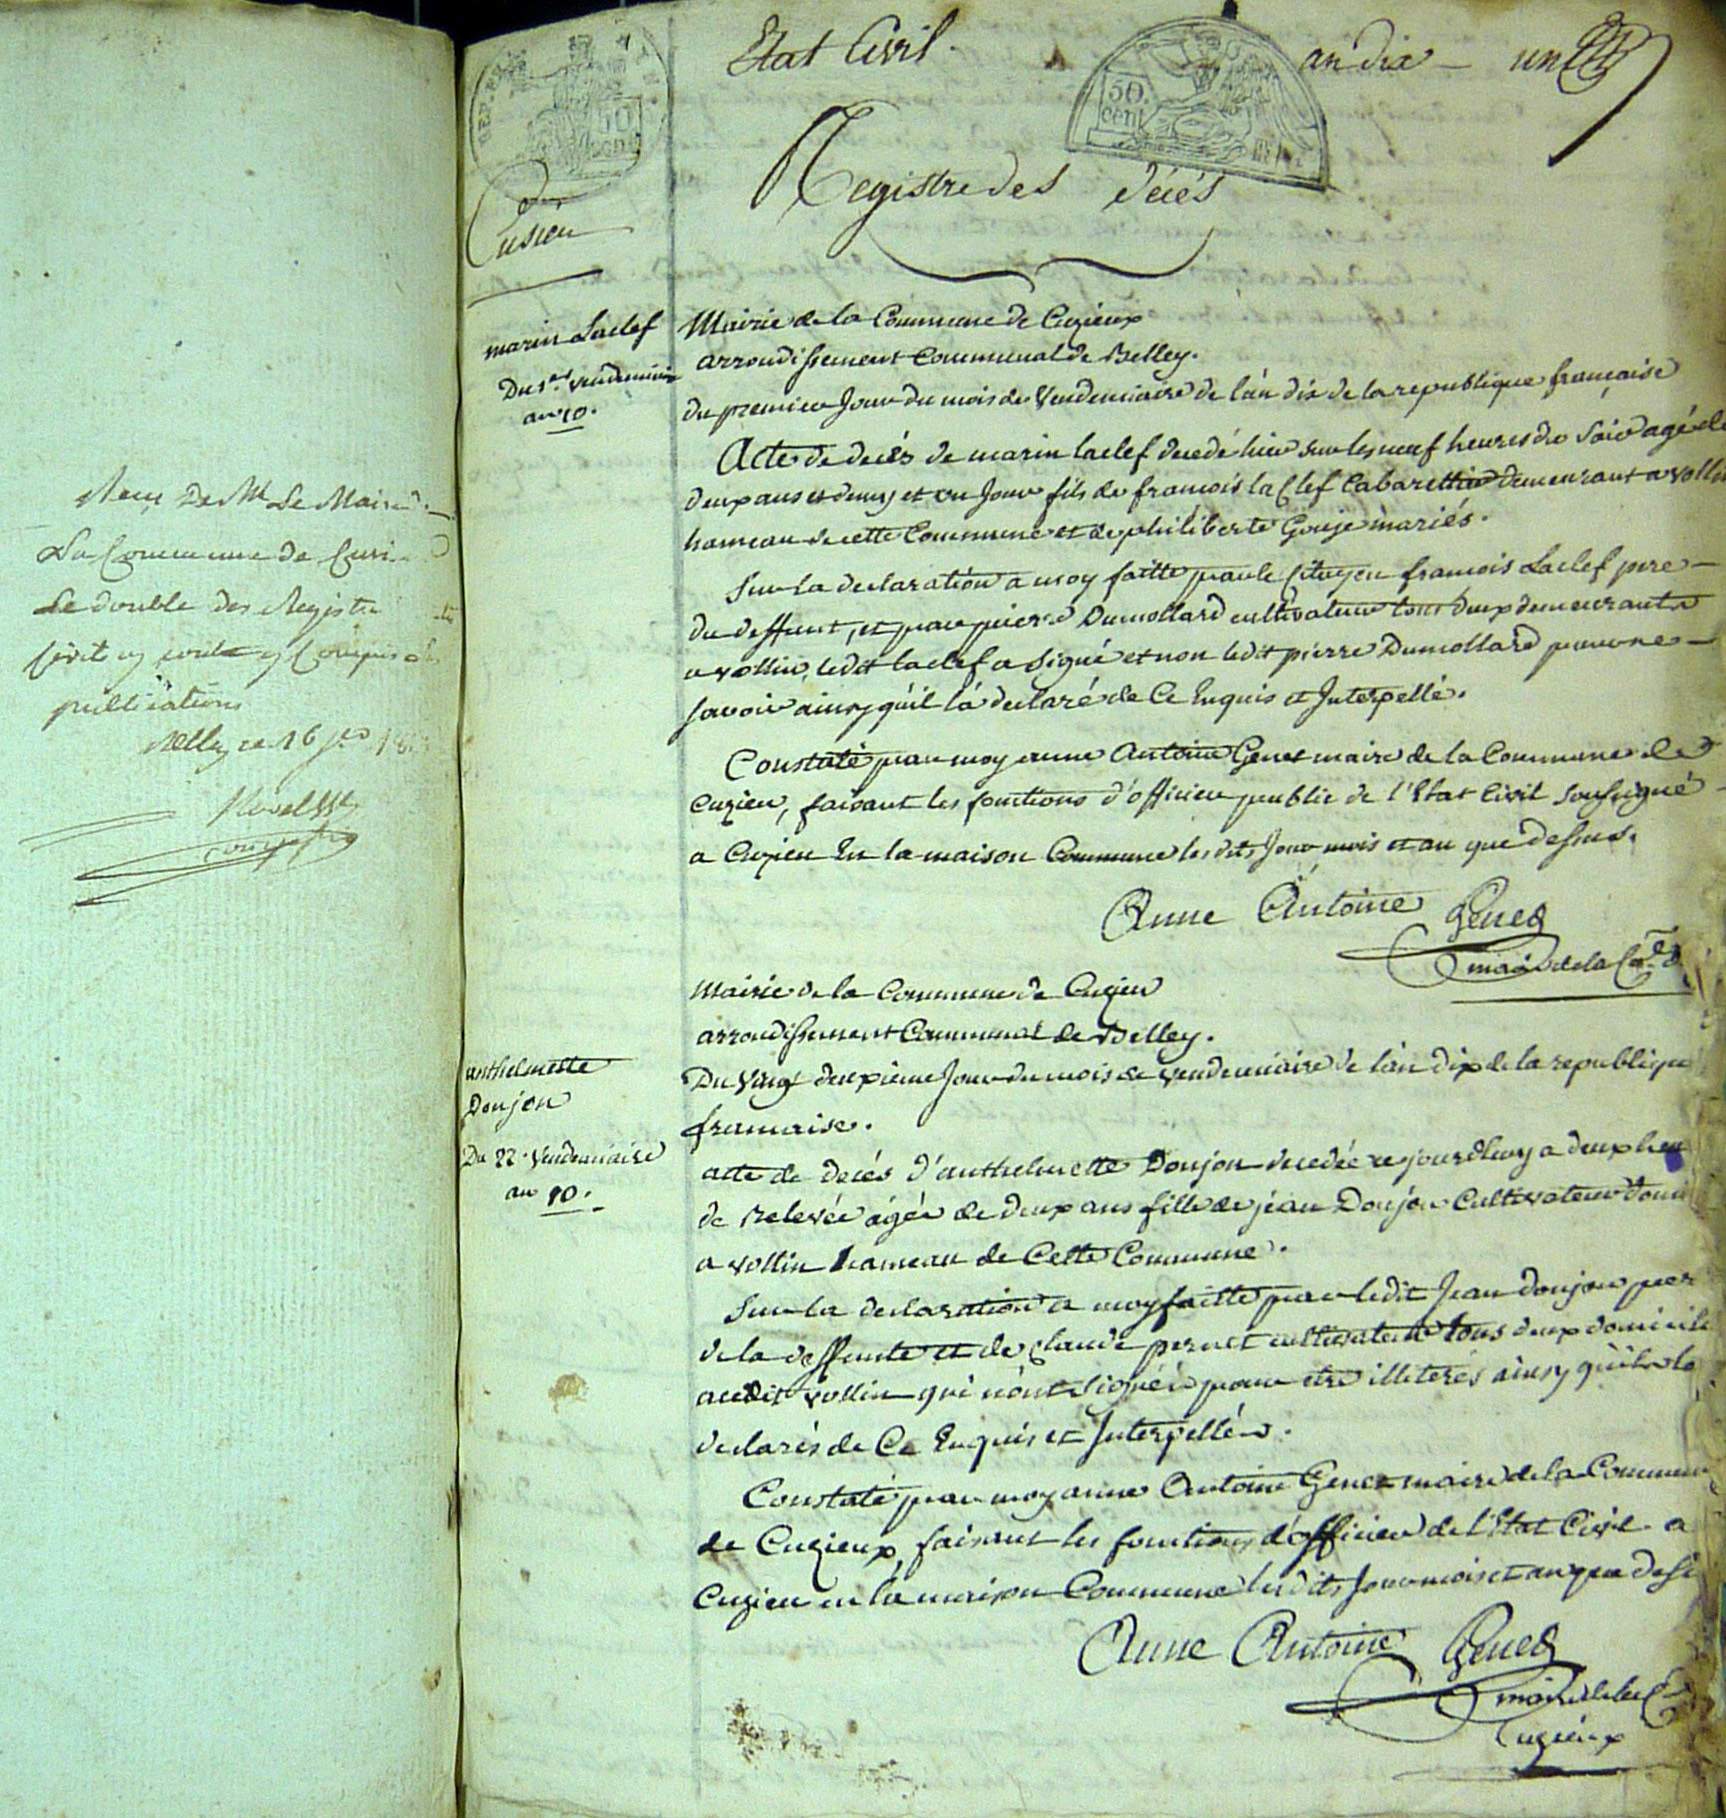 Le Maire
La Commune de
Le double des Registre
publications
ce 16
Etat Civil
an dix
un
50.
cent
Registre des décés
Cusieu
marin Laclef
Du 1er vendemiaire
an 10.
Mairie de la Commune de Cuzieux
arrondissement Communal de Belley.
du premier Jour du mois de Vendemiaire de l'an dix de la republique française
Acte de decés de marin laclef decedé hier sur les neuf heures du soir agé de
deux ans et demy et un Jour fils de françois la Clef Cabarettier demeurant a vollin
hameau de cette Commune et de philiberte Gouje mariés.
Sur la declaration a moy faitte par le Citoyen francois Laclef pere
du deffunt, et par pierre Dumollard cultivateur tous deux demeurants
a vollin, ledit laclef a signé et non ledit pierre Dumollard pour ne
savoir ainsy qu'il l'a declaré de Ce Enquis et Interpellé.
Constaté par moy anne Antoine Genet maire de la Commune de
Cuzieu, faisant les fonctions d'officier public de l'Etat Civil soussigné
a Cuzieu En la maison Commune les dits Jour mois et an que dessus.
Anne Antoine Genet
maire de la
Mairie de la Commune de Cuzieu
arrondissement Communal de Belley.
anthelmette
Donjon
Du 22 Vendemiaire
an 10.
Du Vingt deuxieme Jour du mois de vendemiaire de l'an dix de la republique
francaise.
acte de decés d'anthelmette Donjon decedée ce jourdhuy a deux heu
de Relevée agée de deux ans fille de jean Donjon Cultivateur domi
a vollin hameau de Cette Commune.
Sur la declaration a moy faitte par ledit Jean Donjon per
de la deffunte et de Claude pernet cultivateurs tous deux domicile
audit vollin qui n'ont signés pour etre illeterés ainsy qu'ils lo
declarés de Ce Enquis et Interpellés.
Constaté par moy anne Antoine Genet maire de la Commun
de Cuzieux, faisant les fonctions d'officier de l'Etat Civil a
Cuzieu en la maison Commune les dits Jour mois et an que dess
Anne Antoine Genet
maire de la
Cuzieux